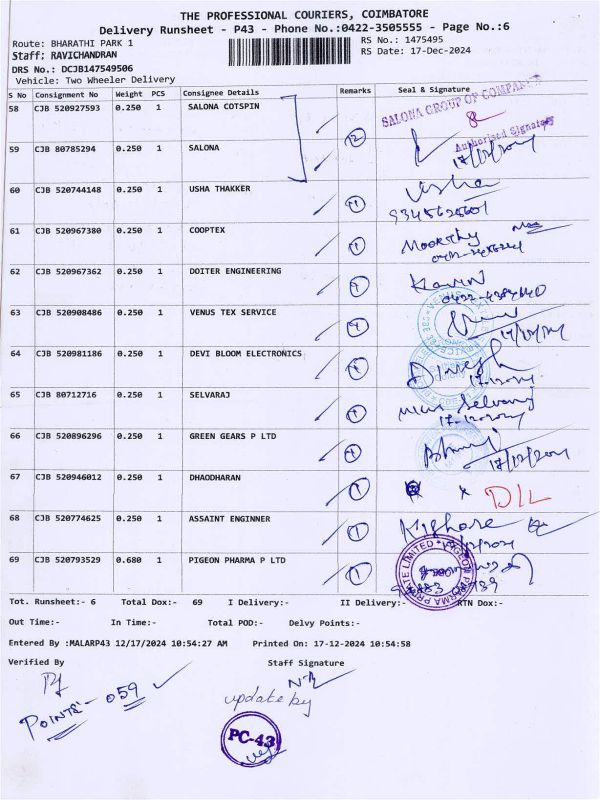 THE PROFESSIONAL COURIERS, COIMBATORE
Delivery Runsheet - P43 - Phone No.:0422-3505555 - Page No.:6
Route: BHARATHI PARK 1
RS No.: 1475495
Staff: RAVICHANDRAN
RS Date: 17-Dec-2024
DRS No.: DCJB147549506
Vehicle: Two Wheeler Delivery
S No Consignment No Weight PCS Consignee Details Remarks Seal & Signature
58 CJB 520927593 0.250 1 SALONA COTSPIN
SALONA GROUP OF COMPAN
Authorised Signatory
12
59 CJB 80785294 0.250 1 SALONA
17/12/2024
60 CJB 520744148 0.250 1 USHA THAKKER
Usha
61 CJB 520967380 0.250 1 COOPTEX
Moorthy
62 CJB 520967362 0.250 1 DOITER ENGINEERING
Kavin
63 CJB 520908486 0.250 1 VENUS TEX SERVICE
17/12/2024
64 CJB 520981186 0.250 1 DEVI BLOOM ELECTRONICS
Dinesh
17-12-2024
65 CJB 80712716 0.250 1 SELVARAJ
Selvaraj
17-12-2024
66 CJB 520896296 0.250 1 GREEN GEARS P LTD
17/12/2024
67 CJB 520946012 0.250 1 DHAODHARAN 1 x D/L
68 CJB 520774625 0.250 1 ASSAINT ENGINNER 1 Kishore
69 CJB 520793529 0.680 1 PIGEON PHARMA P LTD 1
PIGEON PHARMA PRIVATE LIMITED
Tot. Runsheet:- 6 Total Dox:- 69 I Delivery:- II Delivery:- RTN Dox:-
Out Time:- In Time:- Total POD:- Delvy Points:-
Entered By :MALARP43 12/17/2024 10:54:27 AM Printed On: 17-12-2024 10:54:58
Verified By Staff Signature
POINTS - 059
update by
PC-43